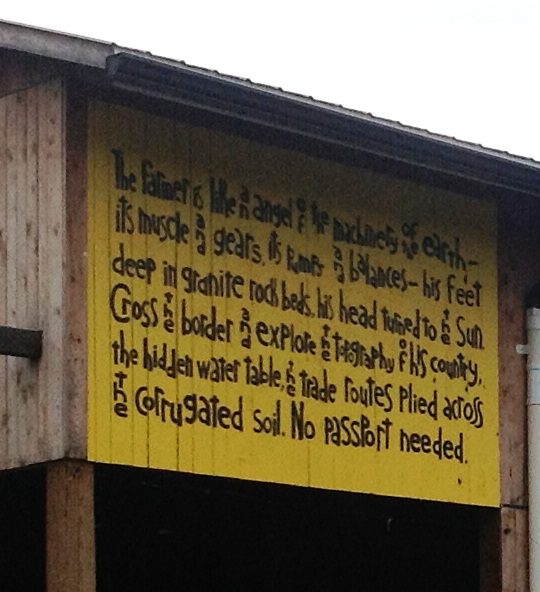 The farmer is like an angel of the machinery of the earth–
its muscle and gears, its pumps and balances– his feet
deep in granite rock beds, his head turned to the sun
Cross the border and explore the topography of his country,
the hidden water table, the trade routes plied across
the corrugated soil. No passport needed.